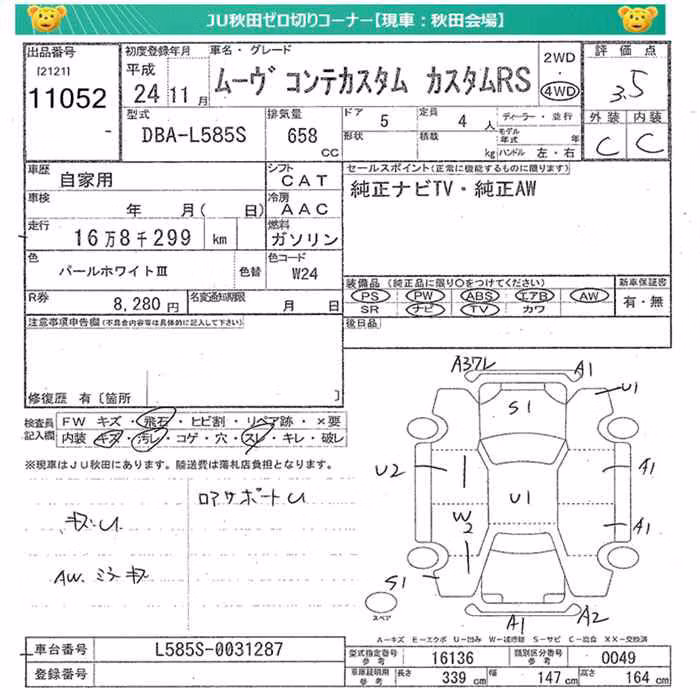 JU秋田ゼロ切りコーナー【現車：秋田会場】
出品番号 [2121] 11052 -
初度登録年月 平成 24 11月
車名・グレード ムーヴ コンテカスタム カスタムRS
2WD 4WD
評価点 3.5
型式 DBA-L585S
排気量 658 CC
ドア 5 定員 4 人 ディーラー・並行
形状 積載 kg モデル年式 年 ハンドル 左・右
外装 C 内装 C
車歴 自家用
シフト CAT
車検 年 月( 日)
冷房 AAC
走行 16万8千299 km
燃料 ガソリン
色 パールホワイトⅢ 色替
色コード W24
R券 8,280円 名変通知期限 月 日
セールスポイント(正常に機能するものに限ります)
純正ナビTV・純正AW
装備品(純正品に限り○をつけてください) 新車保証書
PS PW ABS エアB AW 有・無
SR ナビ TV カワ
後日品
注意事項申告欄(不具合内容等は具体的に記入して下さい)
修復歴 有〔箇所 〕
検査員記入欄 FW キズ・飛石・ヒビ割・リペア跡・×要
内装・キズ・汚レ・コゲ・穴・スレ・キレ・破レ
※現車はJU秋田にあります。陸送費は落札店負担となります。
キズU
AW.ミラキズ
ロアサポートU
A37L A1
S1 U1
U2 U1 A1
W2 A1
S1
スペア
A1 A2
A－キズ E－エクボ U－凹み W－補修跡 S－サビ C－腐食 XX－交換済
車台番号 L585S-0031287
登録番号
型式指定番号 参考 16136 類別区分番号 参考 0049
車庫証明用 参考 長さ 339 cm 幅 147 cm 高さ 164 cm